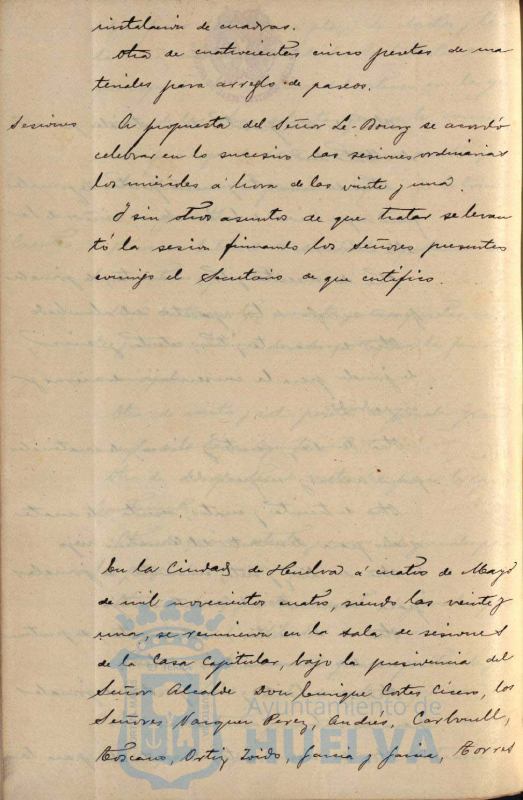 instalacion de cuadras.
Otra de cuatrocientas cinco pesetas de ma
teriales para arreglo de paseos.
Sesiones
A propuesta del Señor Le-Bourg se acordó
celebrar en lo sucesivo las sesiones ordinarias
los miércoles á hora de las veinte y una.
Y sin otros asuntos de que tratar se levan
tó la sesion firmando los Señores presentes
conmigo el Secretario de que certifico.
En la Ciudad de Huelva á cuatro de Mayo
de mil novecientos cuatro, siendo las veinte y
una, se reunieron en la sala de sesiones
de la Casa Capitular, bajo la presidencia del
Señor Alcalde Don Enrique Cortes Cisero, los
Señores Vazquez Perez, Andrés, Carbonell,
Toscano, Ortiz, Toido, Garcia y Garcia, Torres
Ayuntamiento de
HUELVA